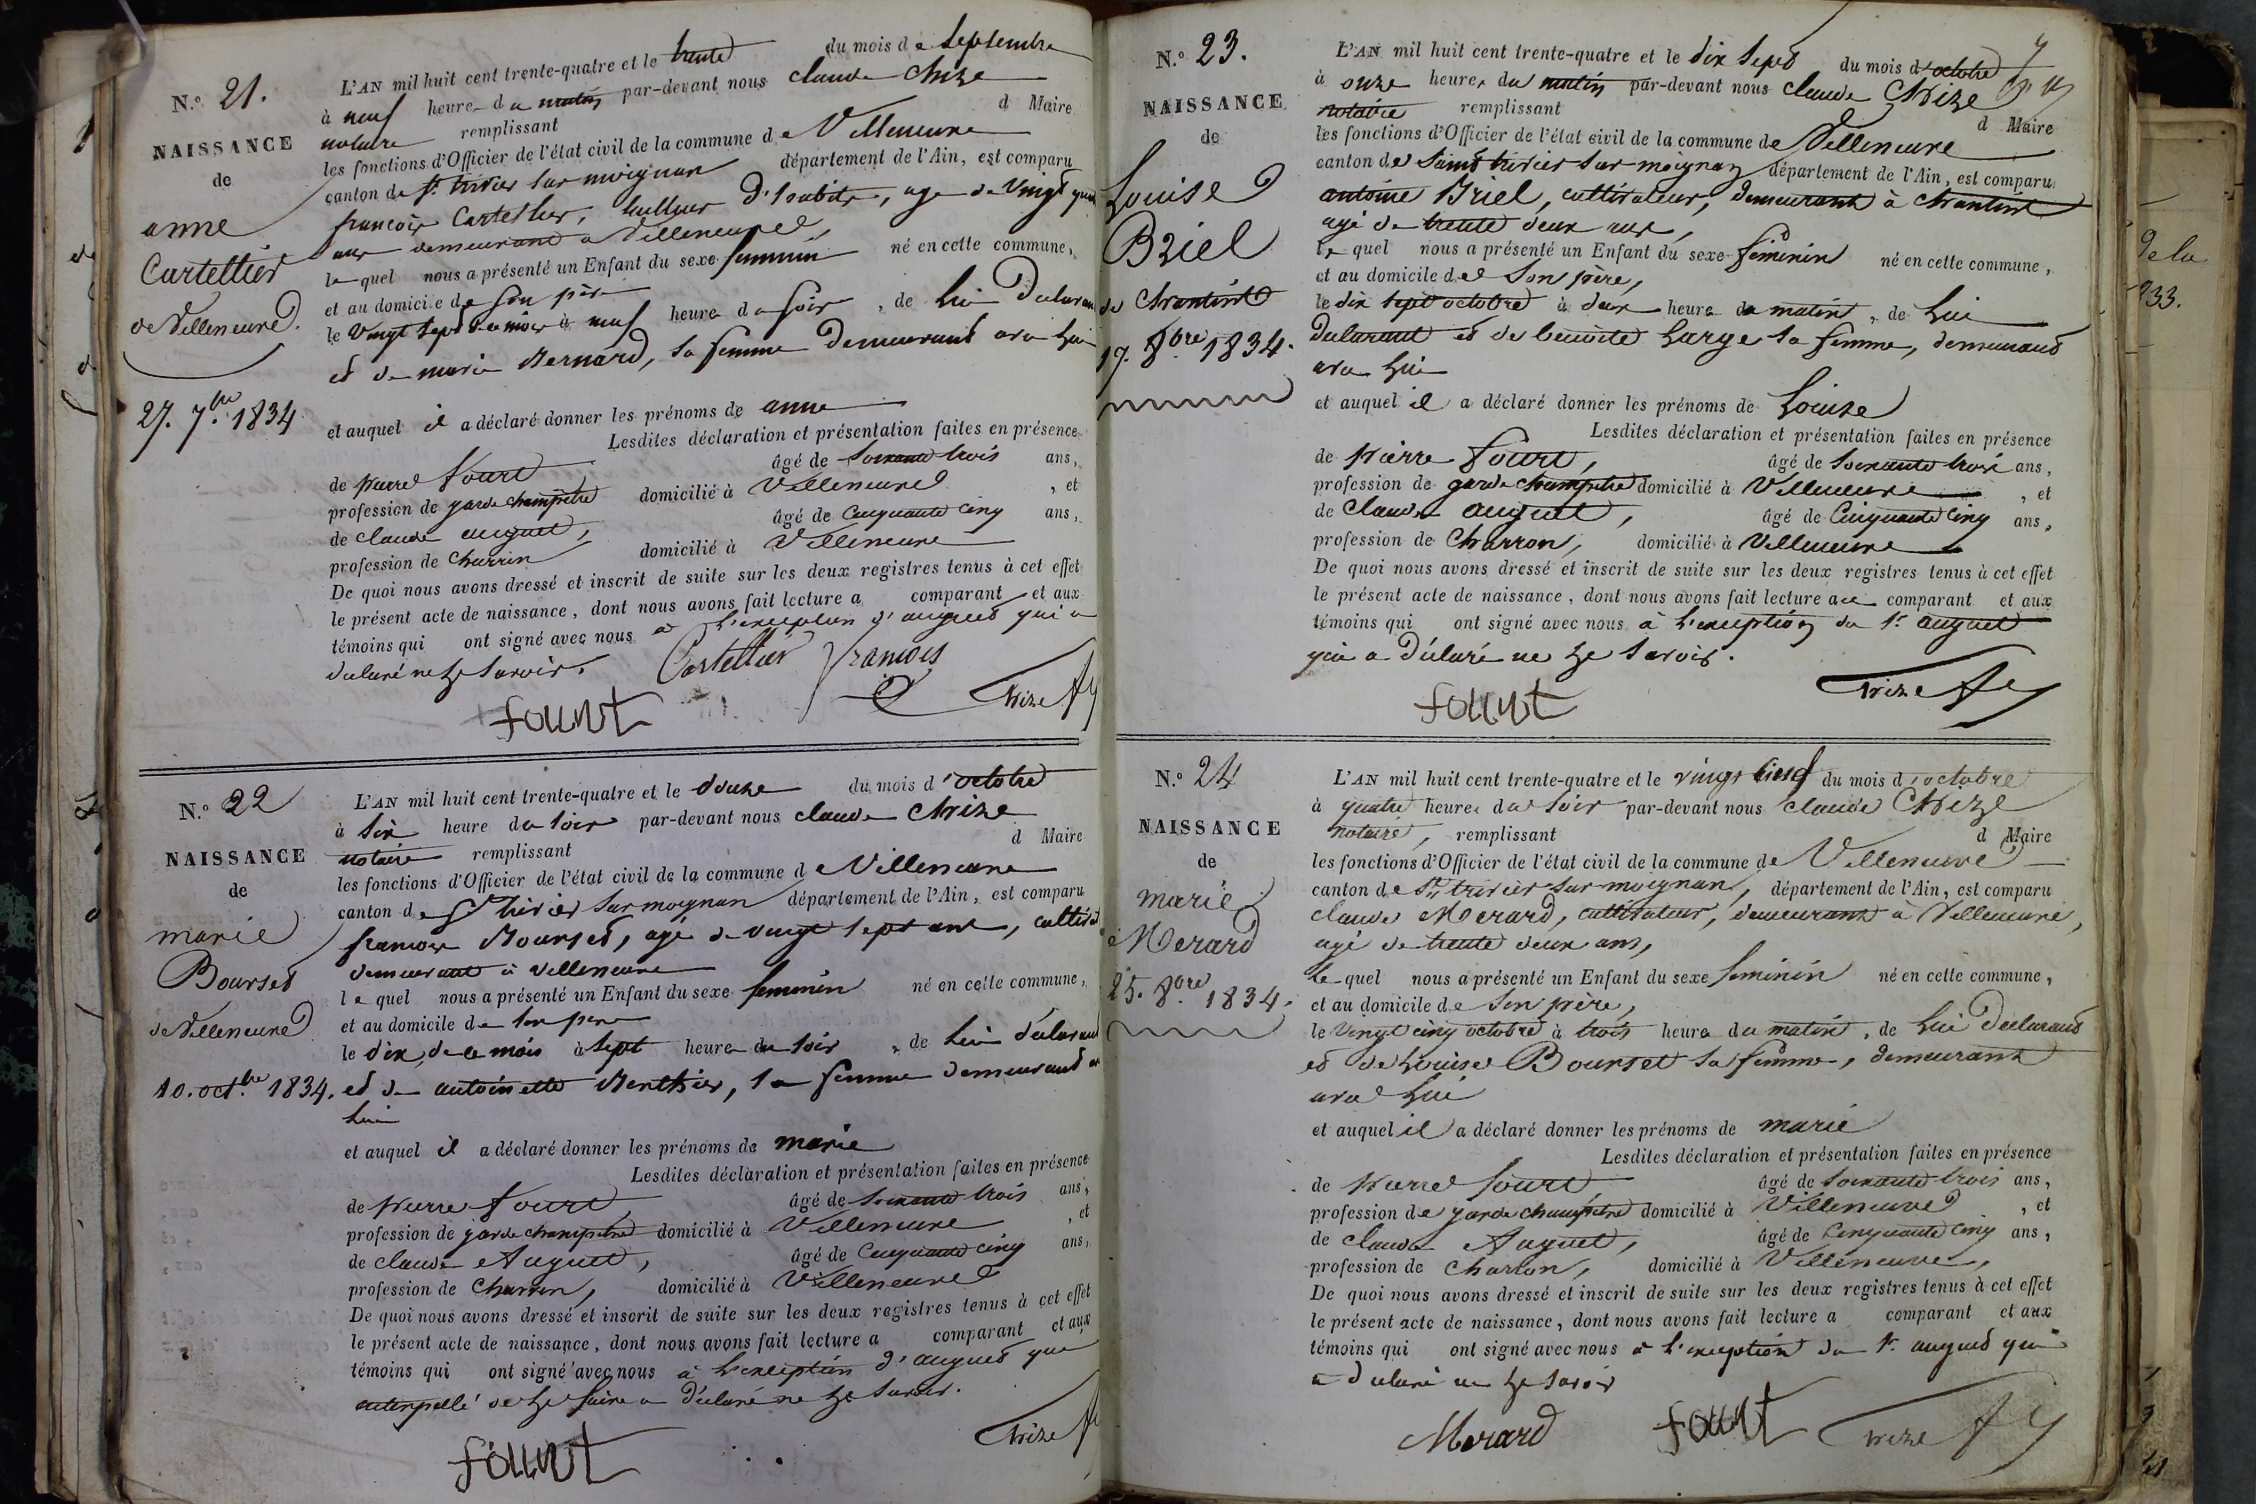 N.° 21.
NAISSANCE
de
anne
Cartellier
de Villeneuve.
27. 7.bre 1834
L'AN mil huit cent trente-quatre et le trente du mois de septembre
à neuf heure du matin par-devant nous claude Chize
notaire remplissant d Maire
les fonctions d'Officier de l'état civil de la commune de Villeneuve
canton de St. trivier sur moignan département de l'Ain, est comparu
françois Cartellier, tailleur d'habits, age de vingt
ans demeurant a Villeneuve,
le quel nous a présenté un Enfant du sexe feminin né en cette commune,
et au domicile de son père
le vingt sept du mois à neuf heure du soir, de lui déclarant
et de marie Bernard, sa femme demeurant avec lui
et auquel il a déclaré donner les prénoms de anne
Lesdites déclaration et présentation faites en présence
de pierre fourt, âgé de soixante trois ans,
profession de garde champêtre domicilié à Villeneuve, et
de claude auguet, âgé de cinquante cinq ans,
profession de charron domicilié à Villeneuve
De quoi nous avons dressé et inscrit de suite sur les deux registres tenus à cet effet
le présent acte de naissance, dont nous avons fait lecture a comparant et aux
témoins qui ont signé avec nous à l'exception d'auguet qui a
déclaré ne le savoir.
Cartellier françois
fourt
Chize
N.° 22
NAISSANCE
de
marie
Bourset
de Villeneuve
10. oct.bre 1834.
L'AN mil huit cent trente-quatre et le douze du mois d'octobre
à six heure du soir par-devant nous claude Chize
notaire remplissant d Maire
les fonctions d'Officier de l'état civil de la commune de Villeneuve
canton de St trivier sur moignan département de l'Ain, est comparu
françois Bourset, agé de vingt sept ans,
demeurant à Villeneuve
le quel nous a présenté un Enfant du sexe feminin né en cette commune,
et au domicile de son pere
le dix de ce mois à sept heure du soir, de lui déclarant
et de antoinette Berthier, sa femme demeurant
lui
et auquel il a déclaré donner les prénoms de marie
Lesdites déclaration et présentation faites en présence
de pierre fourt, âgé de soixante trois ans,
profession de garde champêtre domicilié à Villeneuve, et
de claude Auguet, âgé de cinquante cinq ans,
profession de charron, domicilié à Villeneuve
De quoi nous avons dressé et inscrit de suite sur les deux registres tenus à cet effet
le présent acte de naissance, dont nous avons fait lecture a comparant et aux
témoins qui ont signé avec nous à l'exception d'auguet qui
interpellé de le faire a déclaré ne le savoir.
fourt
Chize
N.° 23.
NAISSANCE
de
Louise
Briel
de Chantint
17. 8bre 1834.
L'AN mil huit cent trente-quatre et le dix sept du mois d'octobre
à onze heure du matin par-devant nous claude Chize
notaire remplissant d Maire
les fonctions d'Officier de l'état civil de la commune de Villeneuve
canton de Saint trivier sur moignan, département de l'Ain, est comparu
antoine Briel, cultivateur, demeurant à Chantint
agé de trente deux ans,
le quel nous a présenté un Enfant du sexe féminin né en cette commune,
et au domicile de son père,
le dix sept octobre à deux heure du matin, de lui
déclarant et de benoite Large sa femme, demeurant
avec lui
et auquel il a déclaré donner les prénoms de Louise
Lesdites déclaration et présentation faites en présence
de pierre fourt, âgé de soixante trois ans,
profession de garde champêtre domicilié à Villeneuve, et
de claude auguet, âgé de cinquante cinq ans,
profession de charron, domicilié à Villeneuve
De quoi nous avons dressé et inscrit de suite sur les deux registres tenus à cet effet
le présent acte de naissance, dont nous avons fait lecture au comparant et aux
témoins qui ont signé avec nous à l'exception du sr. auguet
qui a déclaré ne le savoir.
fourt
Chize
N.° 24
NAISSANCE
de
marie
Merard
25. 8.bre 1834.
L'AN mil huit cent trente-quatre et le vingt cinq du mois d'octobre
à quatre heure du soir par-devant nous claude Chize
notaire, remplissant d Maire
les fonctions d'Officier de l'état civil de la commune de Villeneuve
canton de St trivier sur moignan, département de l'Ain, est comparu
claude Merard, cultivateur, demeurant à Villeneuve,
agé de trente deux ans,
le quel nous a présenté un Enfant du sexe feminin né en cette commune,
et au domicile de son père,
le vingt cinq octobre à trois heure du matin, de lui déclarant
et de Louise Bourset sa femme, demeurant
avec lui
et auquel il a déclaré donner les prénoms de marie
Lesdites déclaration et présentation faites en présence
de pierre fourt, âgé de soixante trois ans,
profession de garde champêtre domicilié à Villeneuve, et
de claude Auguet, âgé de cinquante cinq ans,
profession de charron, domicilié à Villeneuve,
De quoi nous avons dressé et inscrit de suite sur les deux registres tenus à cet effet
le présent acte de naissance, dont nous avons fait lecture a comparant et aux
témoins qui ont signé avec nous à l'exception du sr. auguet qui
a déclaré ne le savoir
Merard
fourt
Chize
de la